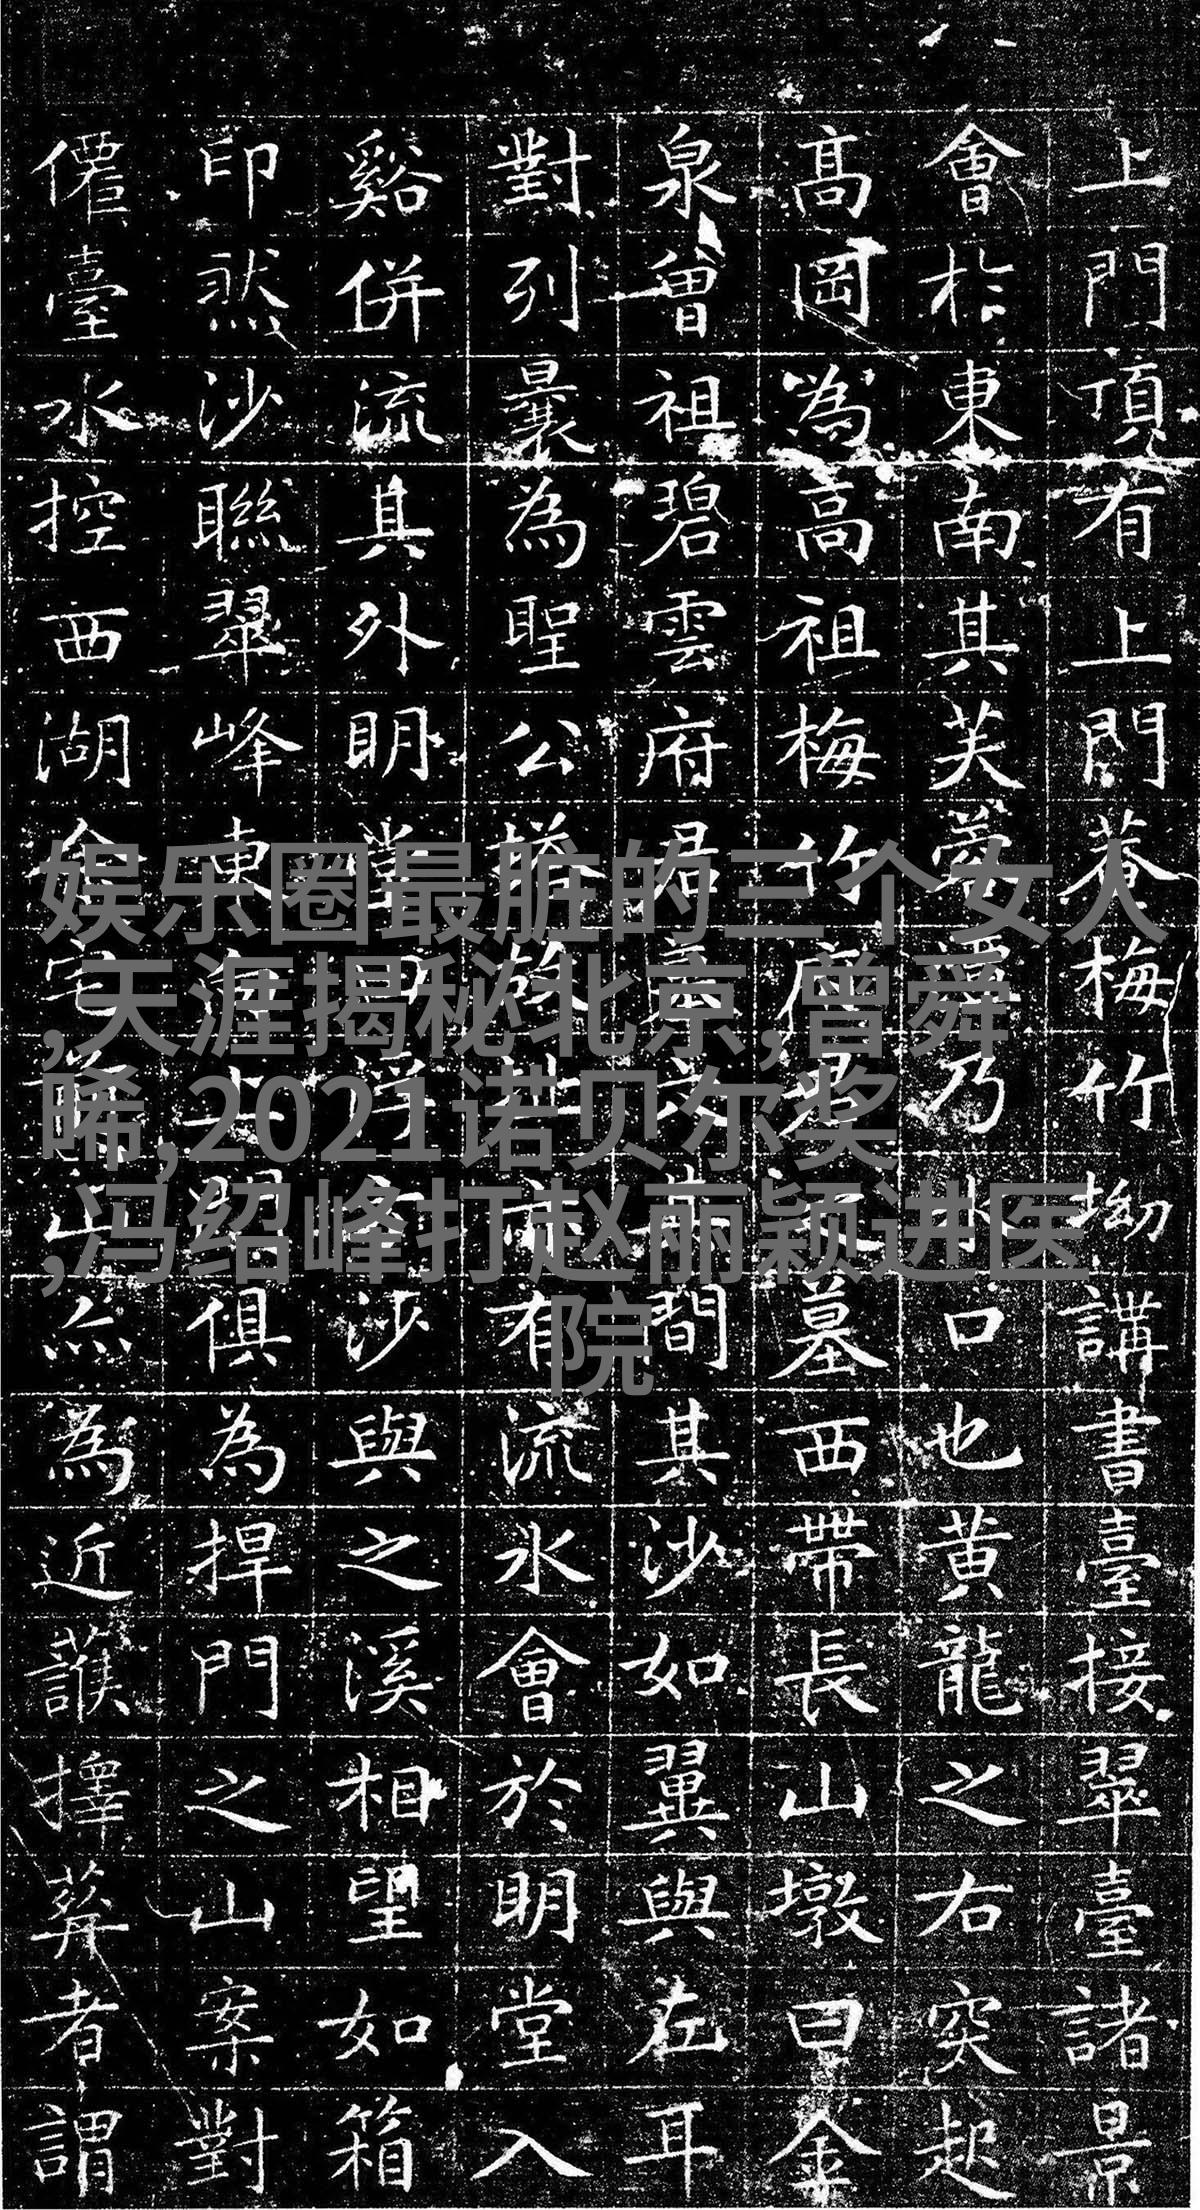 上門頂有上門菴梅竹坳講書臺接翠臺諸景
會於東南其芙蓉乃口也黃龍之右突起
高岡為高祖梅竹府君墓西帶長山墩曰金
泉曾祖碧雲府君墓間其沙如翼與左耳
對列曩為聖公有流水會於明堂入
谿併流其外明堂沙與之溪相望如箱
印然沙聯翠峰東俱為捍門之山案對
僊臺水控西湖為近議擇葬者謂
娱乐圈最脏的三个女人
,天涯揭秘北京,曾舜
晞,2021诺贝尔奖
,冯绍峰打赵丽颖进医
院